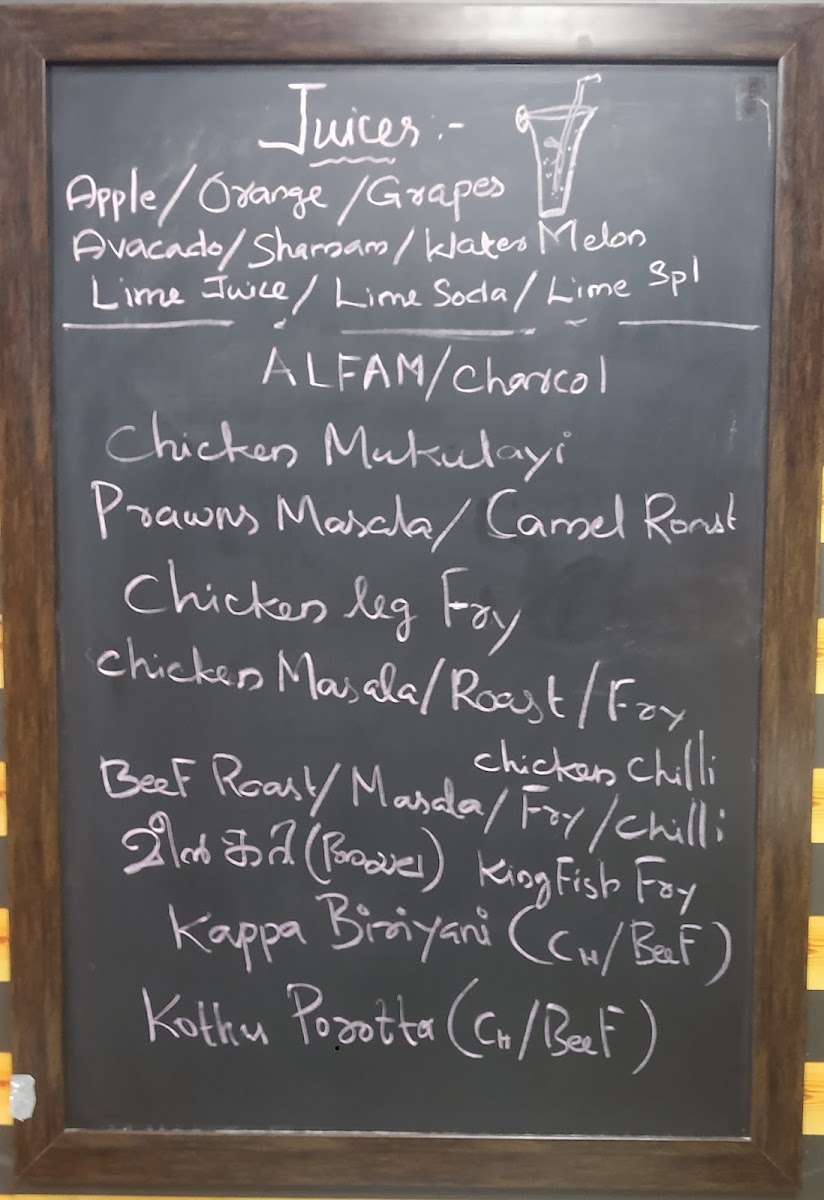 Juices :-
Apple/Orange/Grapes
Avacado/Shamam/Water Melon
Lime Juice/Lime Soda/Lime Spl
ALFAM/Charcol
Chicken Mukulayi
Prawns Masala/Camel Roast
Chicken leg Fry
Chicken Masala/Roast/Fry
Chicken Chilli
Beef Roast/Masala/Fry/Chilli
മീൻ കറി King Fish Fry
Kappa Biriyani (CH/Beef)
Kothu Porotta (CH/Beef)